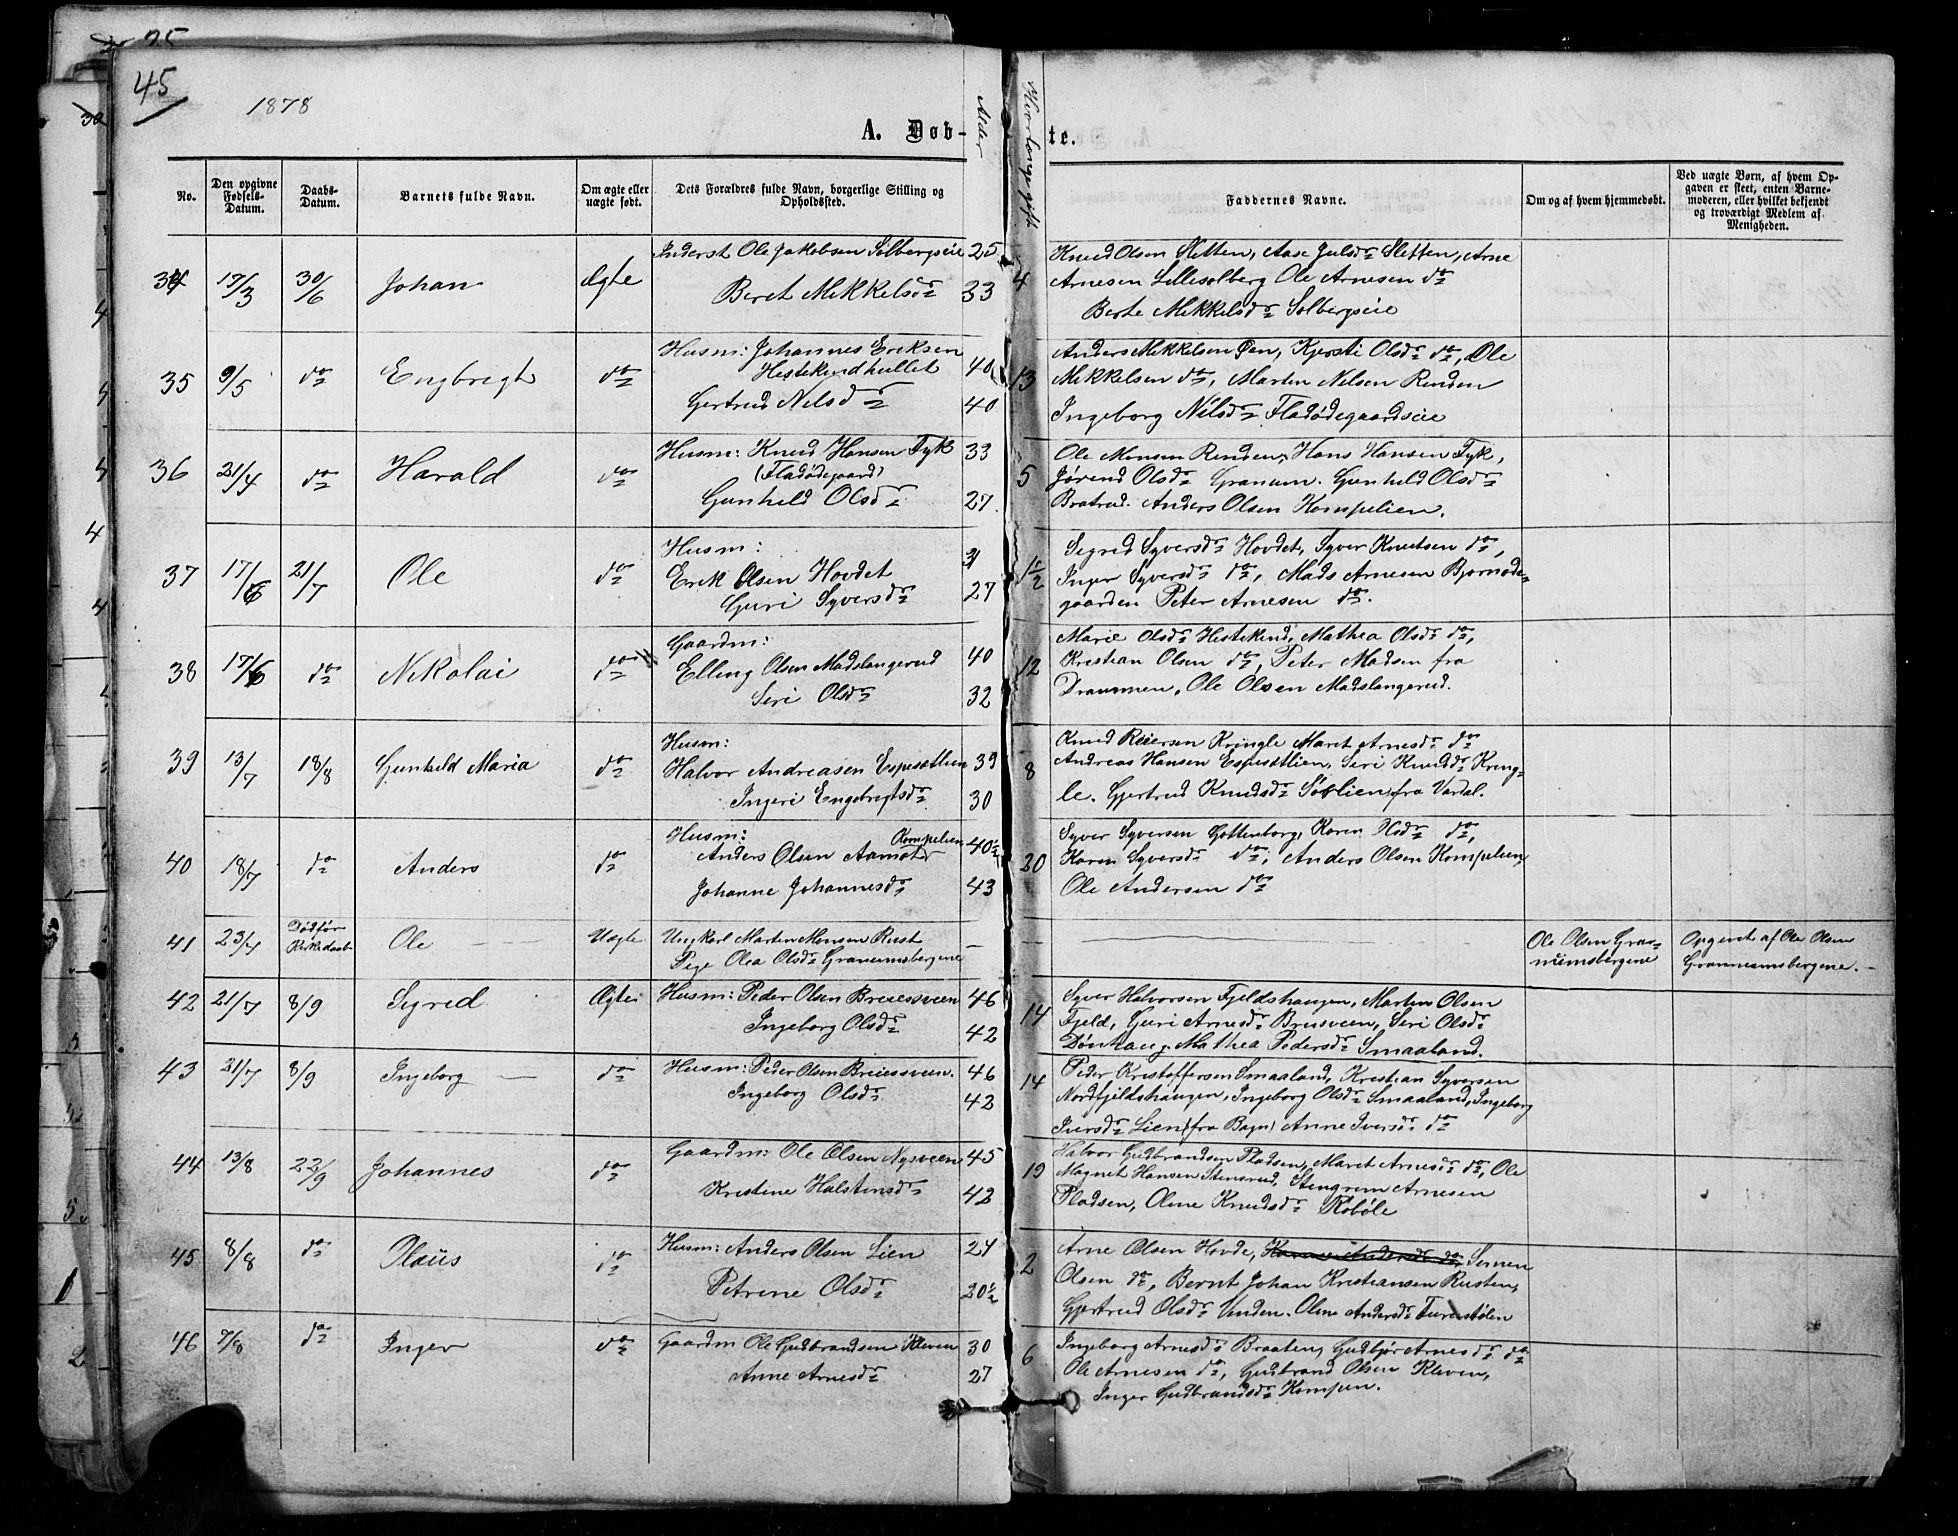 45
1878
A. Døb-
te.
Alder
Hvor længe gift
No.
Den opgivne Fødsels-Datum.
Daabs-Datum.
Barnets fulde Navn.
Om ægte eller uægte født.
Dets Forældres fulde Navn, borgerlige Stilling og Opholdssted.
Faddernes Navne.
Om og af hvem hjemmedøbt.
Ved uægte Børn, af hvem Opgaven er skeet, enten Barnemoderen, eller hvilket bekjendt og troværdigt Medlem af Menigheden.
34 17/3 30/6 Johan Ægte
Inderst Ole Jakobsen Solbergseie 25
Beret Mikkelsdr 33
4
Knud Olsen Sletten, Aase Julsdr Sletten, Arne
Arnesen Lillesolberg Ole Arnesen do
Berte Mikkelsdr Solbergseie
35 9/5 do Engbregt do
Husm: Johannes Eriksen 40
Hestekindhullet
Gertrud Nilsdr 40
13
Anders Mikkelsen Øen, Kjersti Olsdr do, Ole
Mikkelsen do, Martin Nilsen Renden
Ingeborg Nilsdr Fladødegaardseie
36 21/4 do Harald do
Husm: Knud Hansen Fyk 33
(Fladødegaard)
Gunhild Olsdr 27
5
Ole Monsen Renden, Hans Hansen Fyk,
Jørend Olsdr Granum. Gunhild Olsdr
Bratrud. Anders Olsen Kompelien.
37 17/6 21/7 Ole do
Husm:
Erik Olsen Hovdet
Guri Syversdr 27
1 1/2
Sigrid Syversdr Hovdet, Syver Knutsen do,
Inger Syversdr do, Mads Arnesen Bjørnøde-
gaarden Peter Arnesen do.
38 17/6 do Nikolai do
Gaardm: 40
Elling Olsen Madslangerud
Siri Olsdr 32
12
Marie Olsdr Hestekind, Mathea Olsdr do,
Kristian Olsen do, Peter Madsen fra
Drammen, Ole Olsen Madslangerud.
39 13/7 18/8 Gunhild Maria do
Husm:
Halvor Andreasen Espesetlien 39
Ingeri Engebregtsdr 30
8
Knud Reiersen Kringle Marit Arnesdr do
Andreas Hansen Espesetlien, Siri Knudsdr Kring-
le. Gjertrud Knudsdr Sørlien fra Vardal.
40 18/7 do Anders do
Husm: Kompelien 40 1/2
Anders Olsen Aamot
Johanne Johannesdr 43
20
Syver Syversen Gottenborg, Karen Olsdr do,
Karen Syversdr do, Anders Olsen Kompelien
Ole Andersen do
41 23/7 Død før Kirkedaab Ole Uægte
Ungkarl Martin Monsen Rust
Pige Olea Olsdr Granumsbergene
Ole Olsen Gra-
numsbergene
Opgivet af Ole Olsen
Granumsbergene.
42 21/7 8/9 Sigrid Ægte
Husm: Peder Olsen Breiesveen 46
Ingeborg Olsdr 42
14
Syver Halvorsen Fjeldshaugen, Martin Olsen
Fjeld, Guri Arnesdr Brusveen, Siri Olsdr
Dønhaug, Mathea Pedersdr Smaaland.
43 21/7 8/9 Ingeborg do
Husm: Peder Olsen Breiesveen. 46
Ingeborg Olsdr 42
14
Peder Kristoffersen Smaaland, Kristian Syversen
Nordfjeldshaugen, Ingeborg Olsdr Smaaland, Ingeborg
Iversdr Lien (fra Bagn) Anne Iversdr do
44 13/8 22/9 Johannes do
Gaardm: Ole Olsen Nysveen 45
Kristine Halstensdr 42
19
Halvor Gudbrandsen Pladsen, Marit Arnesdr do, Ole
Magnet Hansen Stensrud, Stengrim Arnesen
Pladsen, Oline Knudsdr Robøle
45 8/8 do Olaüs do
Husm: Anders Olsen Lien 24
Petrine Olsdr 20 1/2
2
Arne Olsen Hovde, Simen
Olsen do, Bernt Johan Kristiansen Rusten,
Gjertrud Olsdr Vinden. Oline Andersdr Turistølen
46 7/8 do Inger do
Gaardm Ole Gudbrandsen Kleven 30
Anne Arnesdr 27
6
Ingeborg Arnesdr Braaten, Gudbjør Arnesdr do
Ole Arnesen do, Gudbrand Olsen Kleven,
Inger Gudbrandsdr Kompen.